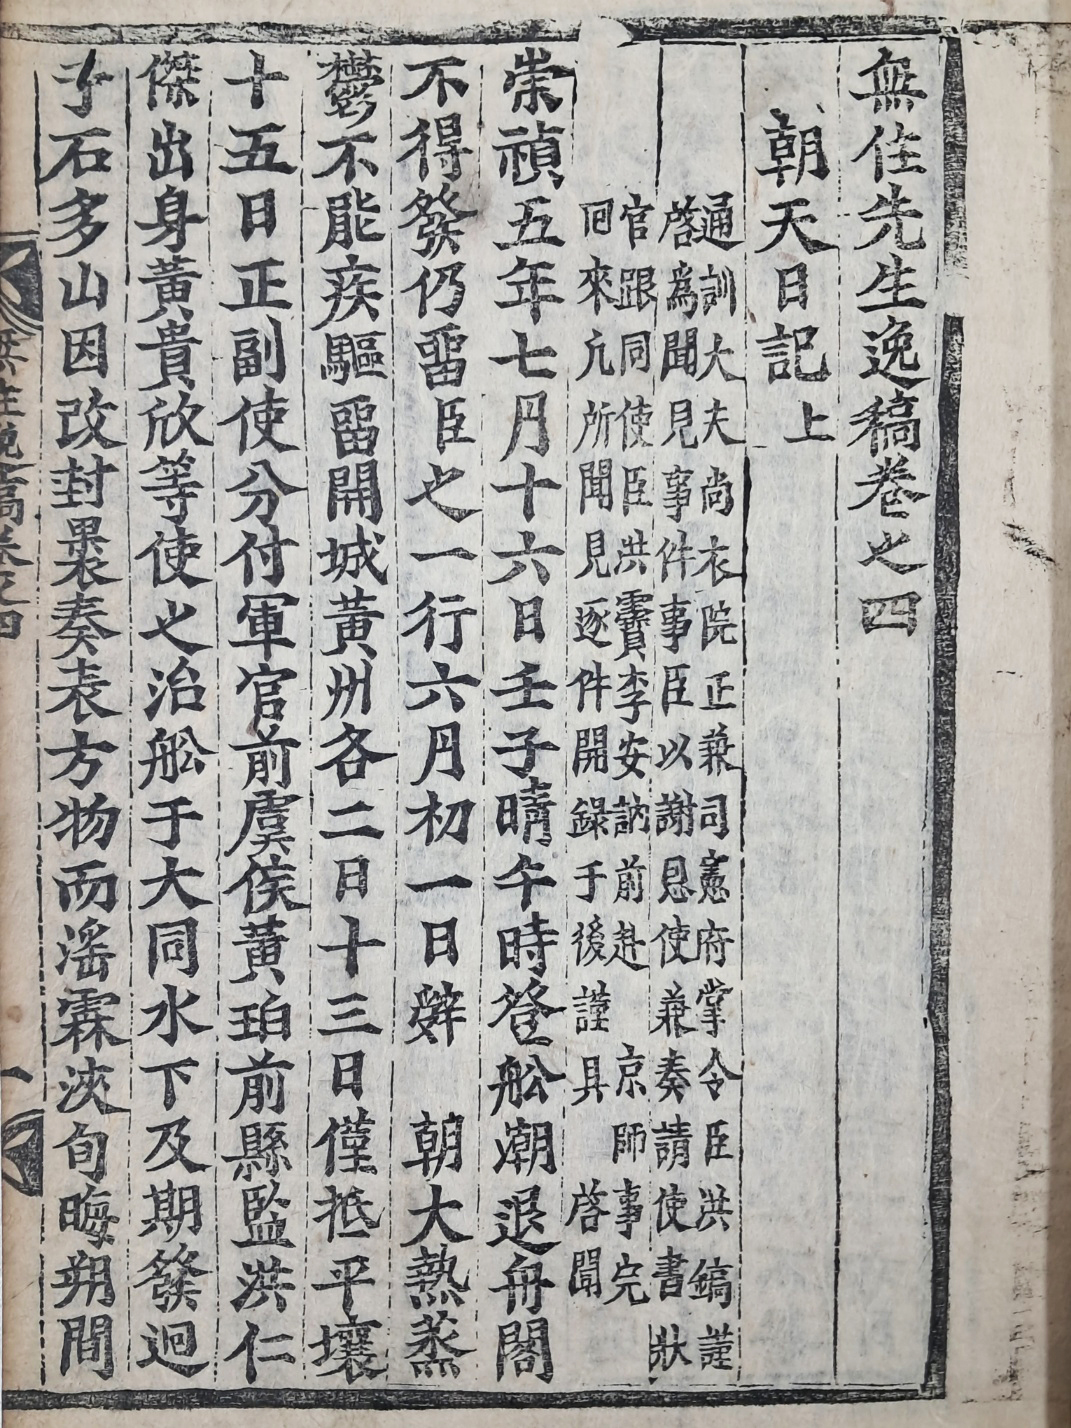 無住先生逸稿卷之四
朝天日記上
通訓大夫尙衣院正兼司憲府掌令臣洪鎬謹
啓爲聞見事件事臣以謝恩使兼奏請使書狀
官跟同使臣洪靌李安訥前赴 京師事完
回來凢所聞見逐件開錄于後謹具 啓聞
崇禎五年七月十六日壬子晴午時登舩潮退舟閣
不得發仍畱臣之一行六月初一日辭 朝大熱蒸
鬱不能疾驅畱開城黃州各二日十三日僅抵平壤
十五日正副使分付軍官前虞侯黃珀前縣監洪仁
傑出身黃貴欣等使之治舩于大同水下及期發迴
于石多山因改封褁奏表方物而滛霖浹旬晦朔間
一